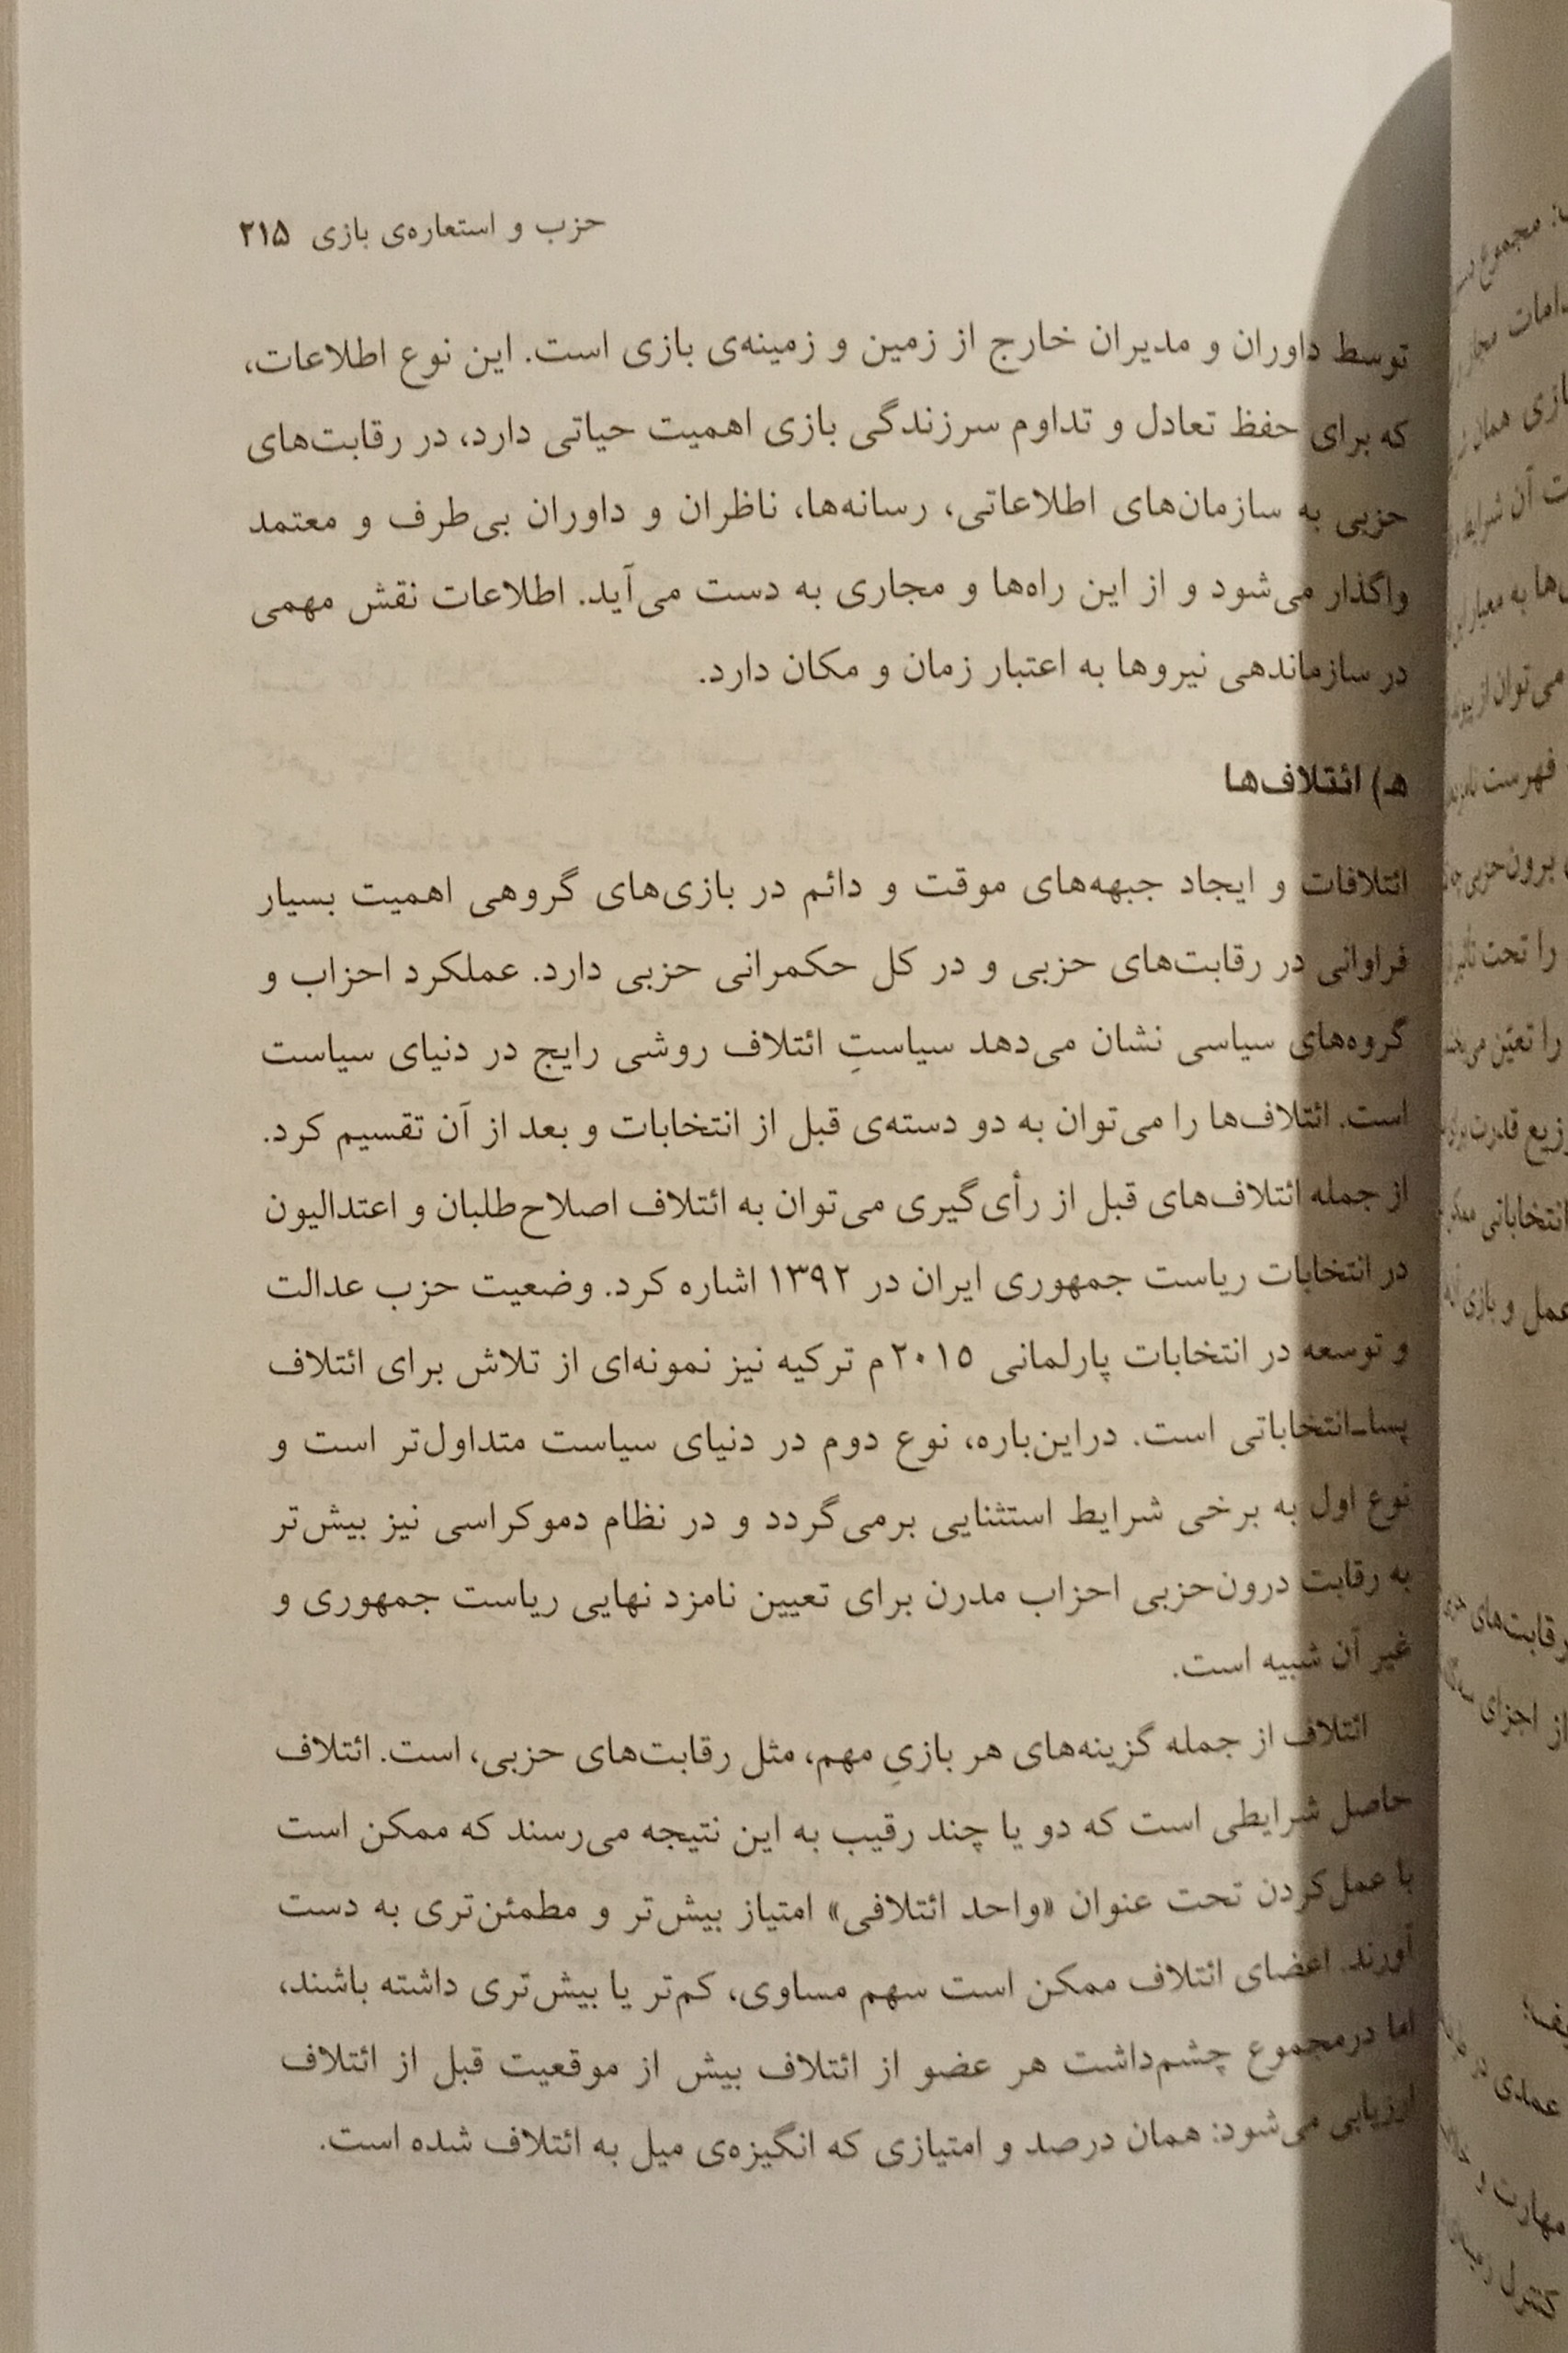 حزب و استعاره‌ی بازی ۲۱۵
توسط داوران و مدیران خارج از زمین و زمینه‌ی بازی است. این نوع اطلاعات،
که برای حفظ تعادل و تداوم سرزندگی بازی اهمیت حیاتی دارد، در رقابت‌های
حزبی به سازمان‌های اطلاعاتی، رسانه‌ها، ناظران و داوران بی‌طرف و معتمد
واگذار می‌شود و از این راه‌ها و مجاری به دست می‌آید. اطلاعات نقش مهمی
در سازماندهی نیروها به اعتبار زمان و مکان دارد.
هـ) ائتلاف‌ها
ائتلافات و ایجاد جبهه‌های موقت و دائم در بازی‌های گروهی اهمیت بسیار
فراوانی در رقابت‌های حزبی و در کل حکمرانی حزبی دارد. عملکرد احزاب و
گروه‌های سیاسی نشان می‌دهد سیاستِ ائتلاف روشی رایج در دنیای سیاست
است. ائتلاف‌ها را می‌توان به دو دسته‌ی قبل از انتخابات و بعد از آن تقسیم کرد.
از جمله ائتلاف‌های قبل از رأی‌گیری می‌توان به ائتلاف اصلاح‌طلبان و اعتدالیون
در انتخابات ریاست جمهوری ایران در ۱۳۹۲ اشاره کرد. وضعیت حزب عدالت
و توسعه در انتخابات پارلمانی ۲۰۱۵م ترکیه نیز نمونه‌ای از تلاش برای ائتلاف
پسا‌ـ‌انتخاباتی است. دراین‌باره، نوع دوم در دنیای سیاست متداول‌تر است و
نوع اول به برخی شرایط استثنایی برمی‌گردد و در نظام دموکراسی نیز بیش‌تر
به رقابت درون‌حزبی احزاب مدرن برای تعیین نامزد نهایی ریاست جمهوری و
غیر آن شبیه است.
ائتلاف از جمله گزینه‌های هر بازیِ مهم، مثل رقابت‌های حزبی، است. ائتلاف
حاصل شرایطی است که دو یا چند رقیب به این نتیجه می‌رسند که ممکن است
با عمل‌کردن تحت عنوان «واحد ائتلافی» امتیاز بیش‌تر و مطمئن‌تری به دست
آورند. اعضای ائتلاف ممکن است سهم مساوی، کم‌تر یا بیش‌تری داشته باشند،
اما درمجموع چشم‌داشت هر عضو از ائتلاف بیش از موقعیت قبل از ائتلاف
ارزیابی می‌شود: همان درصد و امتیازی که انگیزه‌ی میل به ائتلاف شده است.